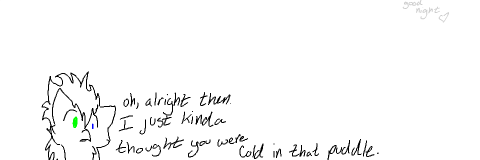 good
night
oh, alright then.
I just kinda
thought you were cold in that puddle.